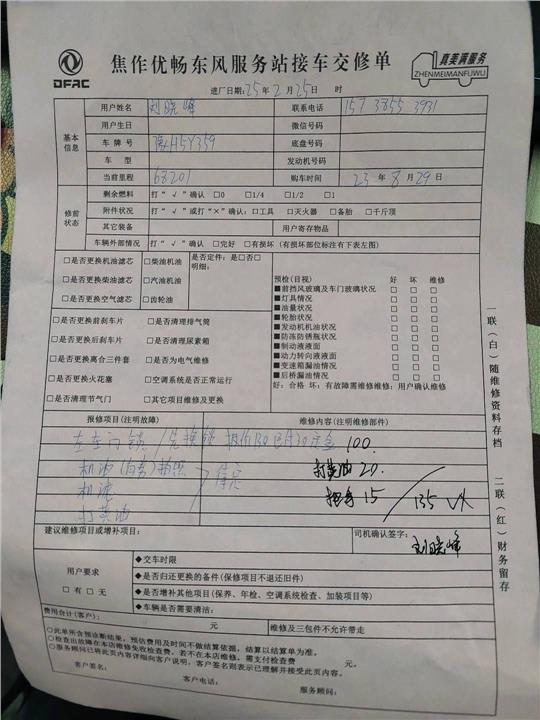 DFAC
焦作优畅东风服务站接车交修单
真美满服务
ZHENMEIMANFUWU
进厂日期:25年2月25日 时
基本信息
用户姓名 刘晓峰 联系电话 157 3855 3931
用户生日 微信号码
车牌号 H5Y359 底盘号码
车型 发动机号码
当前里程 68201 购车时间 23年8月29日
修前状态
剩余燃料 打“√”确认 □0 □1/4 □1/2 □1
附件状况 打“√”或打“×”确认:□工具 □灭火器 □备胎 □千斤顶
其它装备 用户寄存物品
车辆外部情况 打“√”确认 □完好 □有损坏(有损坏部位标注有下表左图)
□是否更换机油滤芯 □柴油机油 是否定件:是□否□
明细:
□是否更换柴油滤芯 □汽油机油
□是否更换空气滤芯 □齿轮油
□是否更换前刹车片 □是否清理排气筒
□是否更换后刹车片 □是否清理尿素箱
□是否更换离合三件套 □是否为电气维修
□是否更换火花塞 □空调系统是否正常运行
□是否清理节气门 □其它项目维修及更换
预检(目视) 好 坏 维修
■前挡风玻璃及车门玻璃状况 □ □ □
■灯具情况 □ □ □
■油量状况 □ □ □
■轮胎状况 □ □ □
■发动机机油状况 □ □ □
■防冻防锈瓶状况 □ □ □
■制动液液面 □ □ □
■动力转向液液面 □ □ □
■变速箱漏油情况 □ □ □
■后桥漏油情况 □ □ □
好:合格 坏:有故障需维修维修:用户确认维修
报修项目(注明故障) 维修内容(注明维修部件)
左车门锁/兑换锁 报价130 已付30定金 100.
机油(自带) 打黄油20.
机滤 15 135 VX
打黄油
建议维修项目或增补项目: 司机确认签字:
刘晓峰
用户要求
□有 □无
◆交车时限
◆是否归还更换的备件(保修项目不退还旧件)
◆是否增补其他项目(保养、年检、空调系统检查、加装项目等)
◆车辆是否需要清洁:
费用合计(客户): 元 维修及三包件不允许带走
○此单所含预诊断结果,预估费用及时间不做结算依据,结算以结算单为准。
○检查出故障在本店维修免收检查费。若不在本店维修,需支付检查费 元。
○服务顾问已将此页内容详细向客户说明,客户签名则表示已理解并接受此页内容。
客户签名: 客户电话: 服务顾问:
一联(白)随维修资料存档 二联(红)财务留存